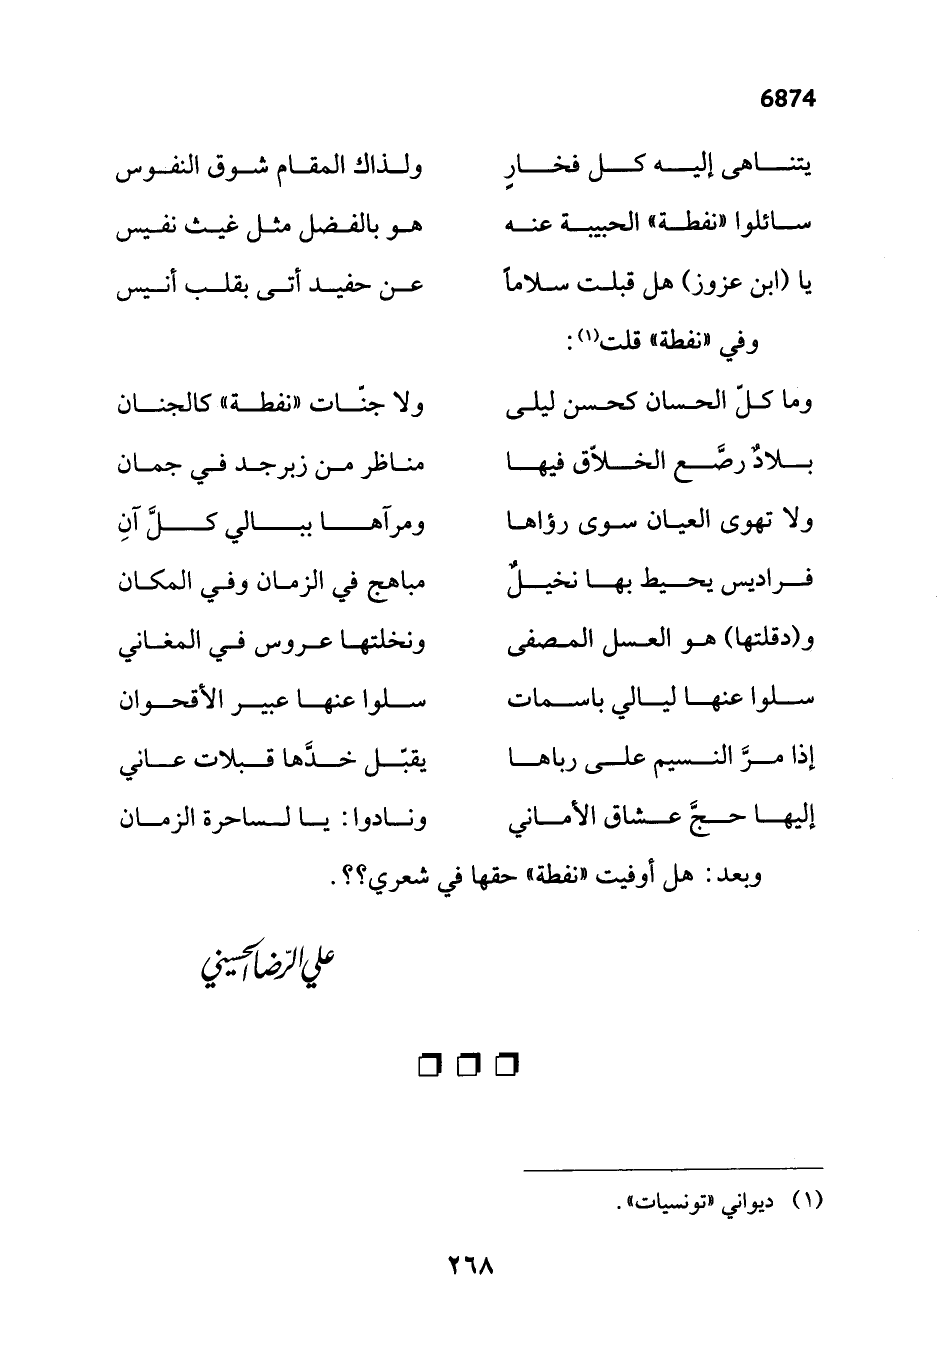 6874
يتناهى إليه كل فخارٍ ولذاك المقام شوق النفوس
سائلوا «نفطة» الحبيبة عنه هو بالفضل مثل غيث نفيس
يا (ابن عزوز) هل قبلت سلاماً عن حفيد أتى بقلب أنيس
وفي «نفطة» قلت(١):
وما كلّ الحسان كحسن ليلى ولا جنّات «نفطة» كالجنان
بلادٌ رصَّع الخلاّق فيها مناظر من زبرجد في جمان
ولا تهوى العيان سوى رؤاها ومرآها ببالي كلَّ آنِ
فراديس يحيط بها نخيلٌ مباهج في الزمان وفي المكان
و(دقلتها) هو العسل المصفى ونخلتها عروس في المغاني
سلوا عنها ليالي باسمات سلوا عنها عبير الأقحوان
إذا مرَّ النسيم على رباها يقبّل خدَّها قبلات عاني
إليها حجَّ عشاق الأماني ونادوا: يا لساحرة الزمان
وبعد: هل أوفيت «نفطة» حقها في شعري؟؟.
علي الرّضا الحسيني
(١) ديواني «تونسيات».
٢٦٨